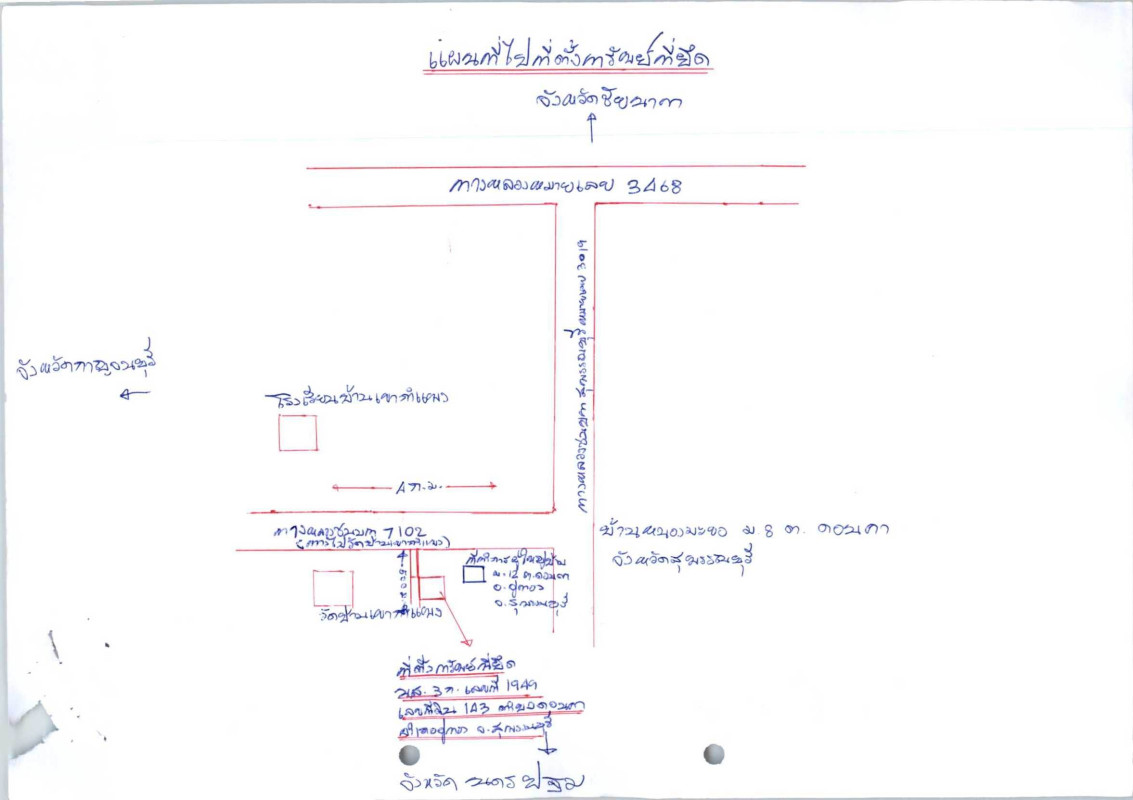 แผนที่ไปที่ตั้งทรัพย์ที่ยึด
จังหวัดชัยนาท
ทางหลวงหมายเลข 3468
ทางหลวงชนบท สุพรรณบุรี หมายเลข 3019
จังหวัดกาญจนบุรี
โรงเรียนบ้านเขากำแพง
4 ก.ม.
ทางหลวงชนบท 7102
(ทางไปวัดบ้านเขากำแพง)
บ้านหนองมะขอ ม 8 ต. ดอนคา
จังหวัดสุพรรณบุรี
ที่ทำการผู้ใหญ่บ้าน
ม.12 ต.ดอนคา
อ.อู่ทอง
จ.สุพรรณบุรี
วัดบ้านเขากำแพง
ที่ตั้งทรัพย์ที่ยึด
นส. 3 ก. เลขที่ 1949
เลขที่ดิน 143 ตำบลดอนคา
อำเภออู่ทอง จ.สุพรรณบุรี
จังหวัด นครปฐม